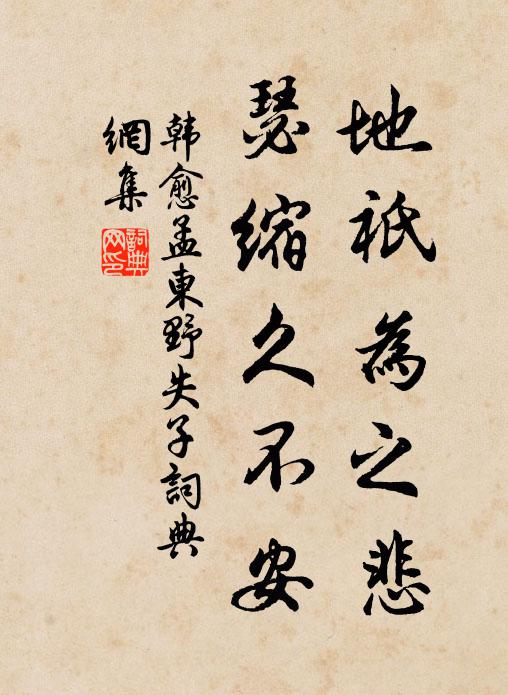 地祇為之悲
瑟縮久不安
韩愈孟東野失子詞典
網集
詞典
网印